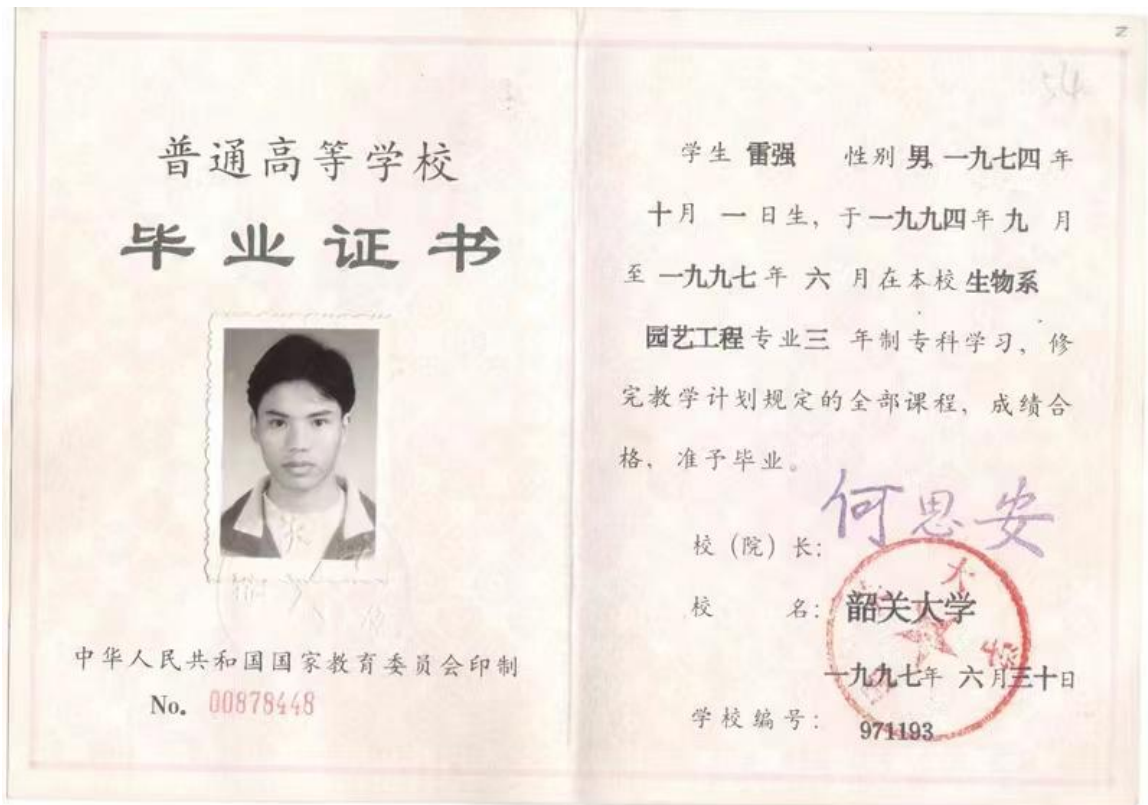 普通高等学校
毕业证书
中华人民共和国国家教育委员会印制
No. 00878448
学生 雷强 性别 男 一九七四年
十月 一日生，于一九九四年九 月
至 一九九七年 六 月在本校 生物系
园艺工程专业三 年制专科学习，修
完教学计划规定的全部课程，成绩合
格，准予毕业。
何思安
校（院）长：
校 名：韶关大学
一九九七年 六月三十日
学校编号：971193